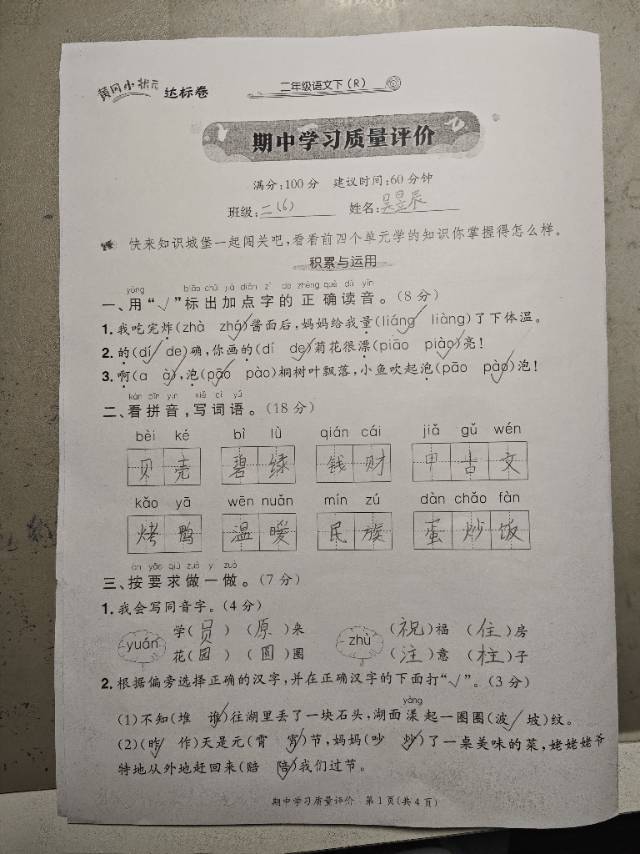 黄冈小状元 达标卷 二年级语文下（R）
期中学习质量评价
满分：100分 建议时间：60分钟
班级：二(6) 姓名：吴昱辰
快来知识城堡一起闯关吧，看看前四个单元学的知识你掌握得怎么样。
积累与运用
yòng biāo chū jiā diǎn zì de zhèng què dú yīn
一、用“√”标出加点字的正确读音。（8分）
1. 我吃完炸(zhà zhá√)酱面后，妈妈给我量(liáng√ liàng)了下体温。
2. 的(dí√ de)确，你画的(dí de√)菊花很漂(piāo piào√)亮！
3. 啊(a à√)，泡(pāo√ pào)桐树叶飘落，小鱼吹起泡(pāo pào√)泡！
kàn pīn yīn xiě cí yǔ
二、看拼音，写词语。（18分）
bèi ké bì lǜ qián cái jiǎ gǔ wén
贝壳 碧绿 钱财 甲古文
kǎo yā wēn nuǎn mín zú dàn chǎo fàn
烤鸭 温暖 民族 蛋炒饭
àn yāo qiú zuò yi zuò
三、按要求做一做。（7分）
1. 我会写同音字。（4分）
yuán 学（员）（原）来 zhù （祝）福（住）房
花（园）（圆）圈 （注）意（柱）子
2. 根据偏旁选择正确的汉字，并在正确汉字的下面打“√”。（3分）
yàng
(1)不知(堆 谁√)往湖里丢了一块石头，湖面漾起一圈圈(波√ 坡)纹。
(2)(昨√ 作)天是元(霄 宵√)节，妈妈(吵 炒√)了一桌美味的菜，姥姥姥爷
特地从外地赶回来(赔 陪√)我们过节。
期中学习质量评价 第1页(共4页)